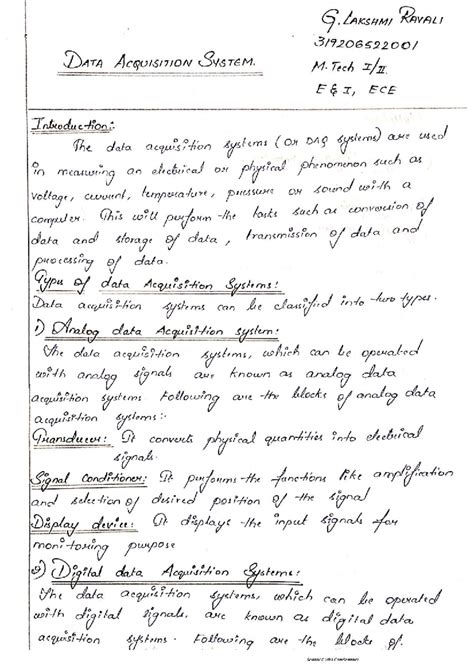 G. LAKSHMI RAVALI
319206522001
DATA ACQUISITION SYSTEM.
M.Tech I/II
E & I, ECE
Introduction:-
The data acquisition systems (or DAQ systems) are used
in measuring an electrical or physical phenomenon such as
voltage, current, temperature, pressure or sound with a
computer. This will perform the tasks such as conversion of
data and storage of data, transmission of data and
processing of data.
Types of data Acquisition Systems:
Data acquisition systems can be classified into two types.
1) Analog data Acquisition system:
The data acquisition systems, which can be operated
with analog signals are known as analog data
acquisition systems Following are the blocks of analog data
acquisition systems:-
Transducer: It converts physical quantities into electrical
signals.
Signal Conditioner: It performs the functions like amplification
and selection of desired position of the signal
Display device: It displays the input signals for
monitoring purpose
2) Digital data Acquisition Systems:
The data acquisition systems, which can be operated
with digital signals. are known as digital data
acquisition systems. Following are the blocks of.